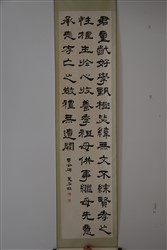 君童齔好學甄極毖緯無文不綜賢孝之
性根生於心收養季祖母供事繼母先意
承志存亡之敬禮無遺闕
曹全碑